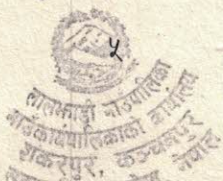 ५
लालझाडी गाउँपालिका
गाउँकार्यपालिकाको कार्यालय
शंकरपुर, कञ्चनपुर
नेपाल